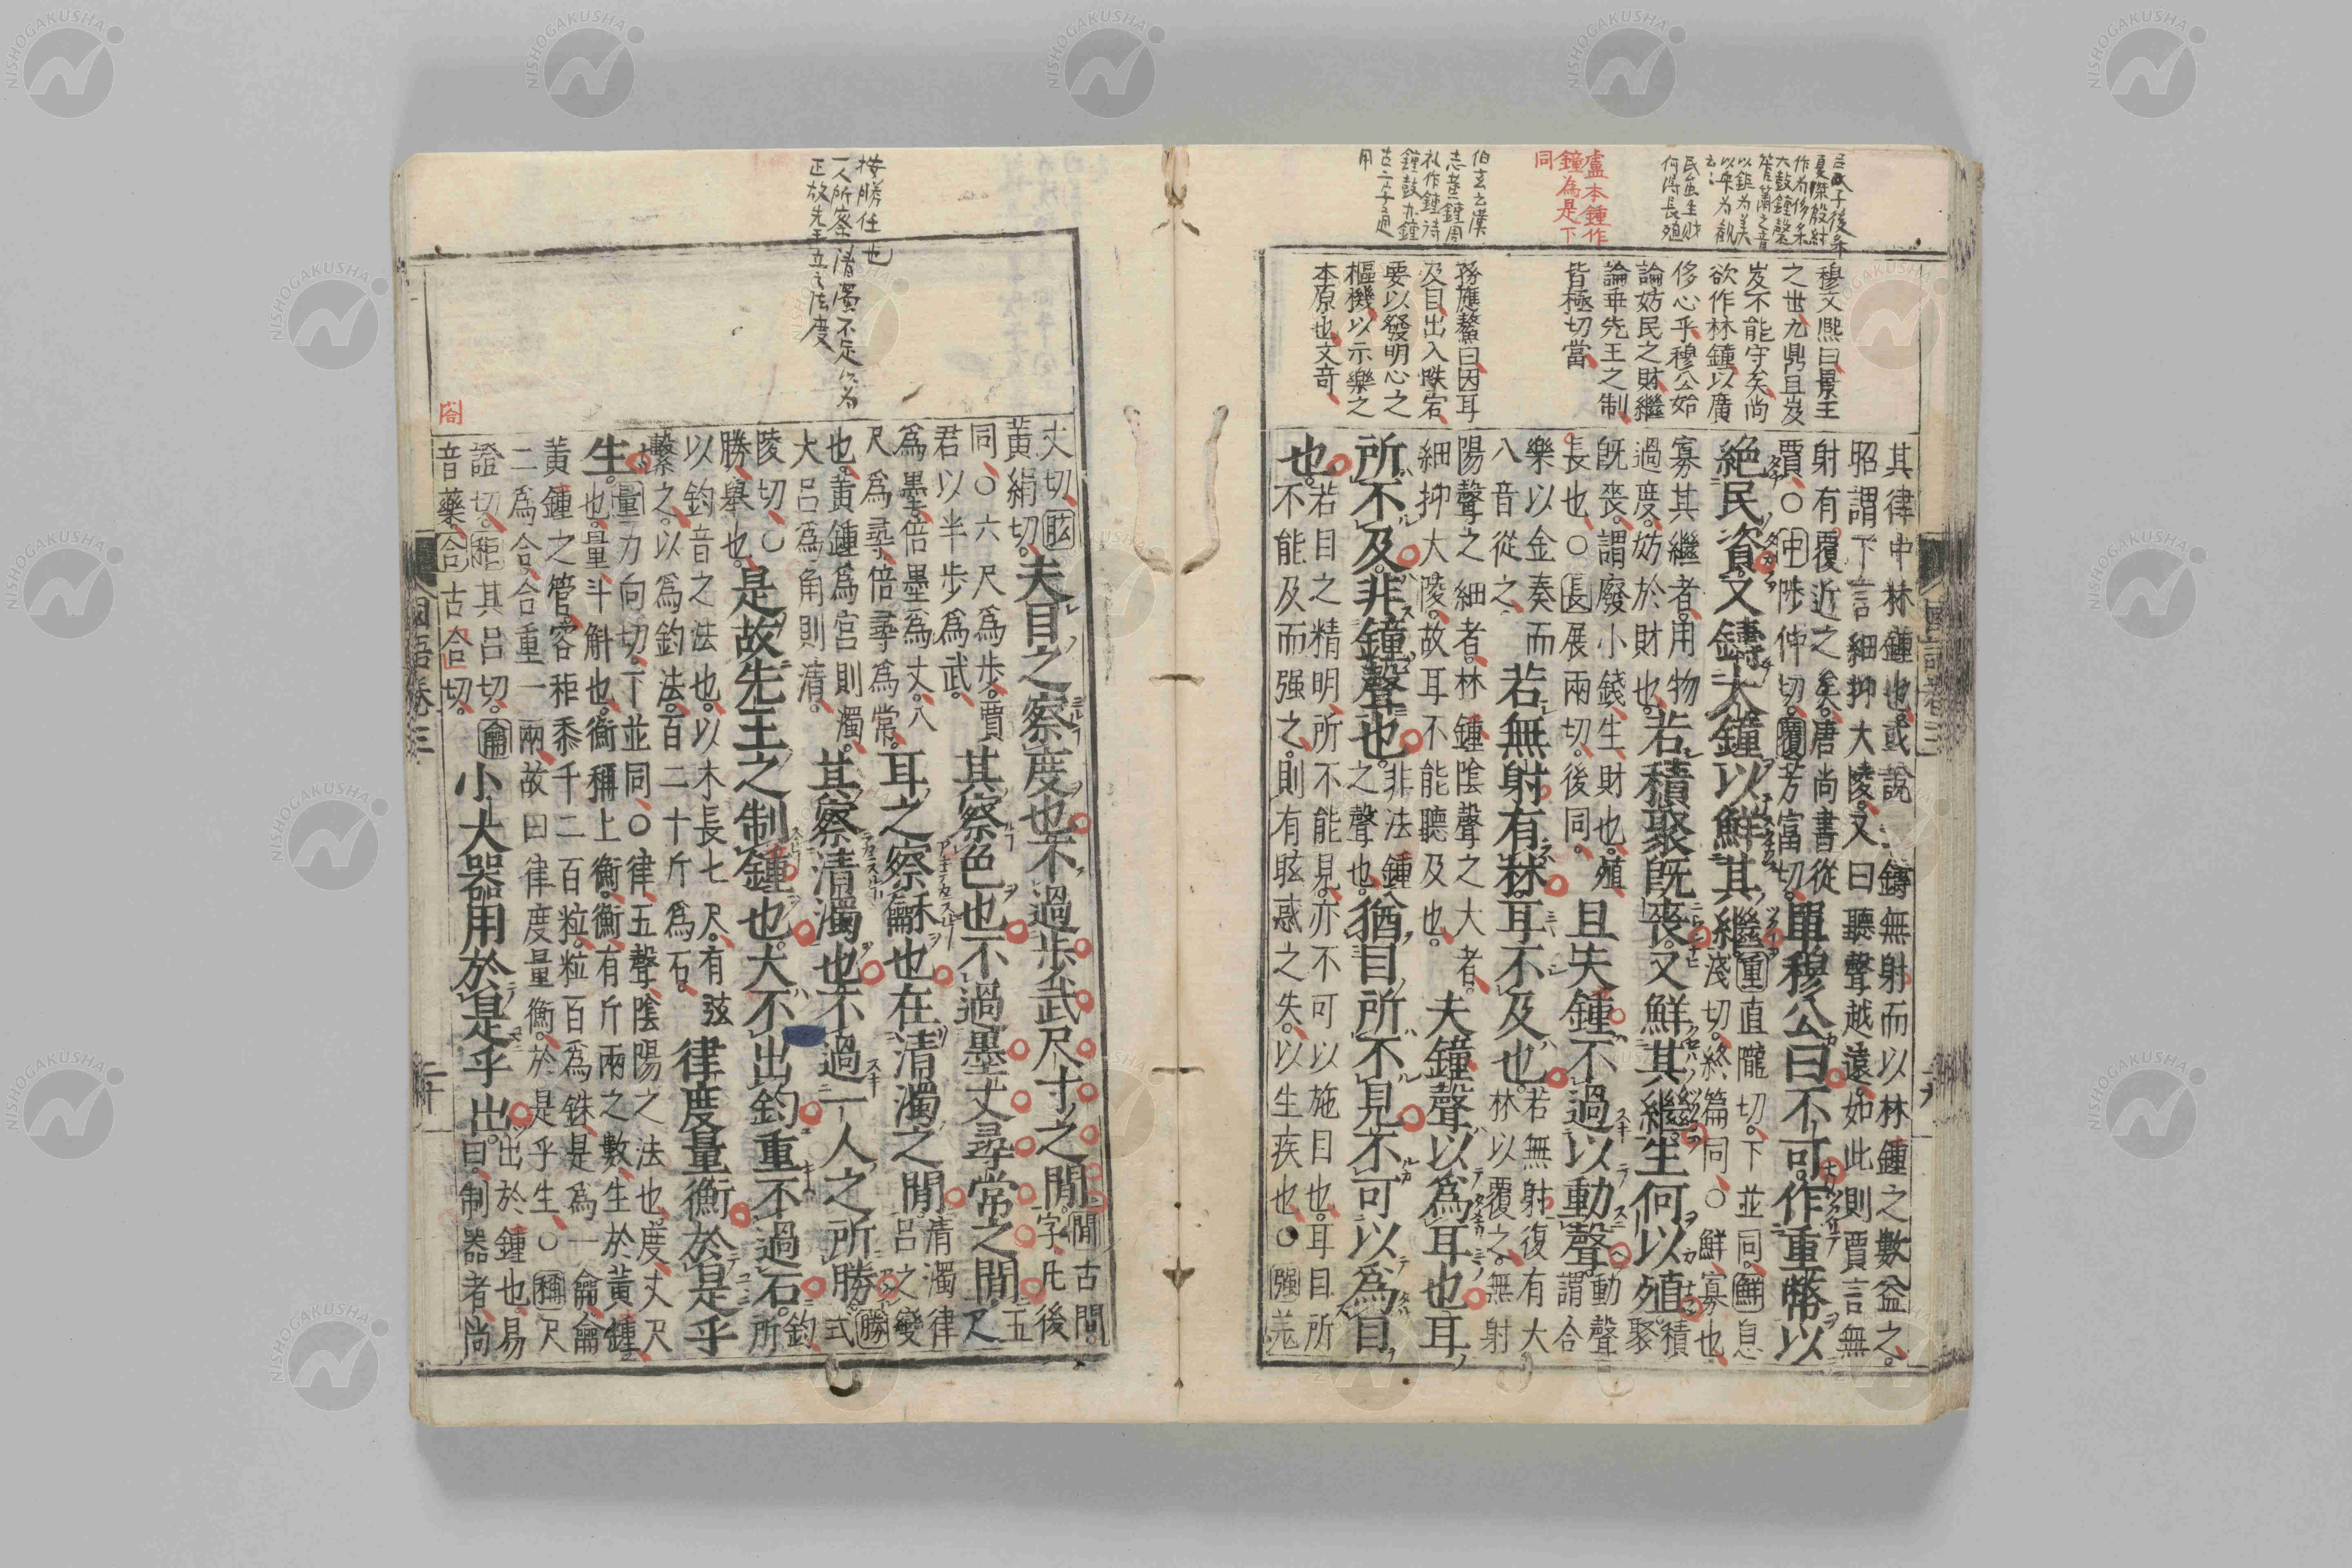 夏桀殷紂
作為侈樂
大鼓鐘磬
管簫之音
以鉅為美
以衆為觀
何得長殖
盧本鍾作
鐘為是下
同
穆文熙曰景王
之世九鼎且岌
岌不能守矣尚
欲作林鍾以廣
侈心乎穆公始
論妨民之財繼
論乖先王之制
皆極切當
孫應鰲曰因耳
及目出入跌宕
要以發明心之
樞機以示樂之
本原也文奇
其律中林鍾也或說鑄無射而以林鍾之數益之
昭謂下言細抑大陵又曰聽聲越遠如此則賈言無
射有覆近之矣唐尚書從
賈○中陟仲切覆芳富切單穆公曰不可作重幣以
絕民資又鑄大鐘以鮮其繼重直隴切下並同鮮息
淺切終篇同○鮮寡也
寡其繼者用物
過度妨於財也若積聚既喪又鮮其繼生何以殖積
聚
既喪謂廢小錢生財也殖
長也○長展兩切後同且失鍾不過以動聲動聲
謂合
樂以金奏而
八音從之若無射有林耳不及也若無射復有大
林以覆之無射
陽聲之細者林鍾陰聲之大者
細抑大陵故耳不能聽及也夫鐘聲以爲耳也耳
所不及非鐘聲也非法鍾
之聲也猶目所不見不可以爲目
也若目之精明所不能見亦不可以施目也耳目所
不能及而强之則有眩惑之失以生疾也○强羌
國語卷三
按勝任也
一人所察清濁不定以為
正故先王立之法度
丈切眩
黃絹切夫目之察度也不過步武尺寸之閒閒古閒
字凡後
同○六尺爲步賈
君以半步爲武其察色也不過墨丈尋常之閒五
尺
爲墨倍墨爲丈八
尺爲尋倍尋爲常耳之察龢也在清濁之閒清濁律
呂之變
也黃鍾爲宮則濁
大呂爲角則清其察清濁也不過一人之所勝勝式
陵切○
勝舉也是故先王之制鍾也大不出鈞重不過石鈞
所
以鈞音之法也以木長七尺有弦
繫之以爲鈞法百二十斤爲石律度量衡於是乎
生量力向切下並同○律五聲陰陽之法也度丈尺
也量斗斛也衡稱上衡衡有斤兩之數生於黃鍾
黃鍾之管容秬黍千二百粒粒百爲銖是爲一龠龠
二爲合合重一兩故曰律度量衡於是乎生○稱尺
證切秬其呂切龠
音藥合古合切小大器用於是乎出出於鍾也易
曰制器者尚
國語卷三